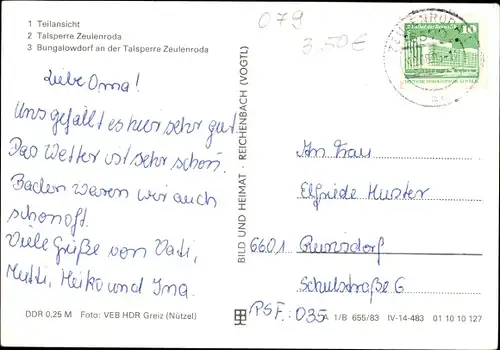 1 Teilansicht
2 Talsperre Zeulenroda
3 Bungalowdorf an der Talsperre Zeulenroda
079
3,50€
10
Liebe Oma!
Uns gefällt es hier sehr gut.
Das Wetter ist sehr schön.
Baden waren wir auch
schon oft.
Viele Grüße von Vati,
Mutti, Heiko und Ina.
DDR 0,25 M Foto: VEB HDR Greiz (Nützel)
BILD UND HEIMAT · REICHENBACH (VOGTL)
An Frau
Elfriede Muster
6601 Reinsdorf
Schulstraße 6
PSF.: 035
A 1/B 655/83 IV-14-483 01 10 10 127